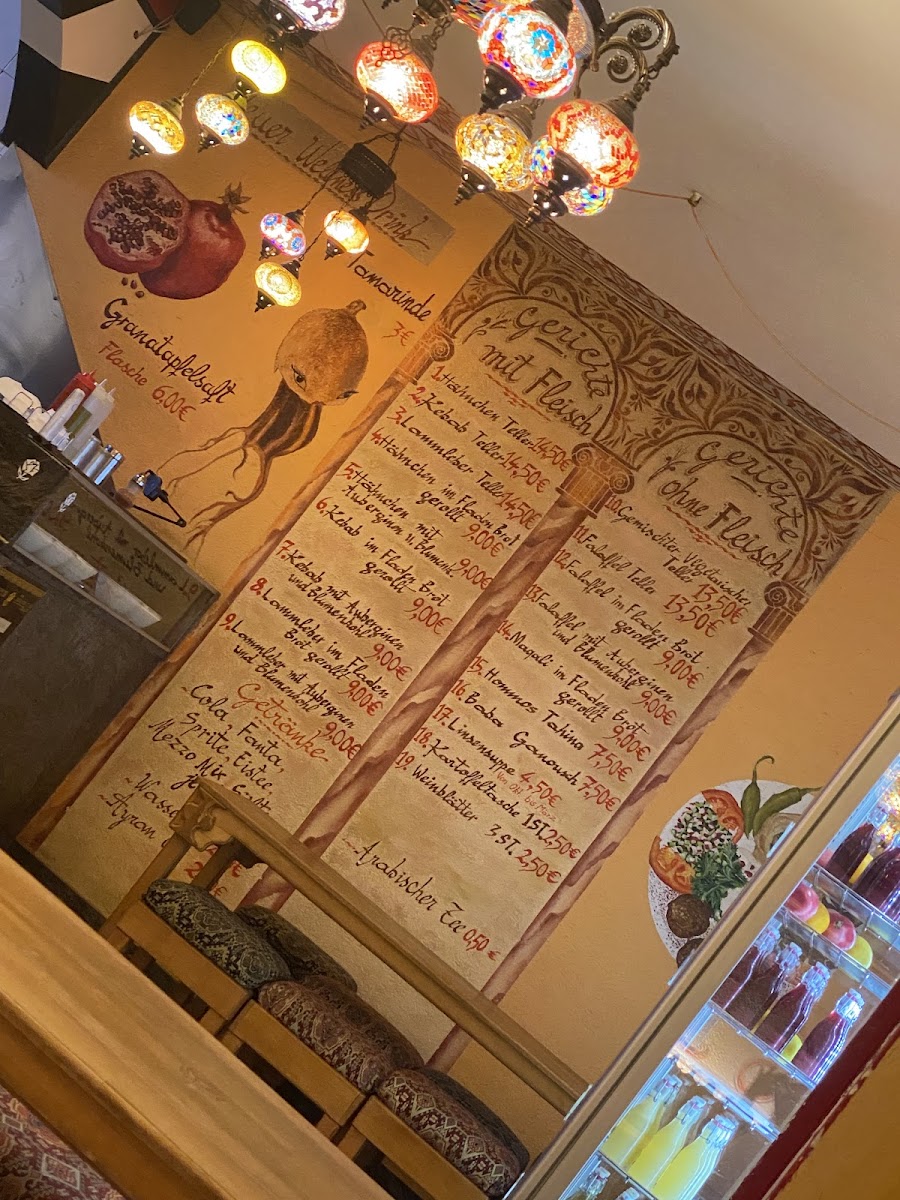 Granatapfelsaft
Flasche 6.00€
Tamarinde
3€
Gerichte
mit Fleisch
1. Hähnchen Teller 14.50€
2. Kebab Teller 14.50€
3. Lammleber Teller 14.50€
4. Hähnchen im Fladen Brot
gerollt 9,00€
5. Hähnchen mit
Auberginen u. Blumenk. 9,00€
6. Kebab im Fladen Brot
gerollt 9,00€
7. Kebab mit Auberginen
und Blumenkohl 9,00€
8. Lammleber im Fladen
Brot gerollt 9,00€
9. Lammleber mit Auberginen
und Blumenkohl 9,00€
Getränke
~Cola, Fanta,
Sprite, Eistee,
Mezzo Mix
~Ayran
Gerichte
ohne Fleisch
10. Gemischter Vegetarischer
Teller 13,50€
11. Falaffel Teller 13,50€
12. Falaffel im Fladen Brot
gerollt 9,00€
13. Falaffel mit Auberginen
und Blumenkohl 9,00€
14. Maqali im Fladen Brot
gerollt 9,00€
15. Hommos Tahina 7,50€
16. Baba Ganousch 7,50€
17. Linsensuppe 4,50€
18. Kartoffeltasche 1St. 2,50€
19. Weinblätter 3 ST. 2,50€
~Arabischer Tee 0,50€